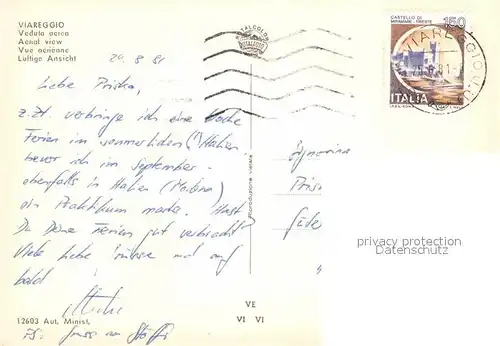 VIAREGGIO
Veduta aerea
Aerial view
Vue aérienne
Luftige Ansicht
29.8.81
Liebe Priska,
z.Zt. verbringe ich eine Woche
Ferien im sommerlichen (!) Italien
bevor ich im September
ebenfalls in Italien (Modena)
ein Praktikum mache. Hast
Du Deine Ferien gut verbracht?
Viele liebe Grüsse und auf
bald
PS: Gruss an Steffi
12603 Aut. Minist.
VE
VI VI
Riproduzione vietata
ITALCOLOR
CASTELLO DI
MIRAMARE - TRIESTE
150
ITALIA
VIAREGGIO
Signorina
privacy protection
Datenschutz